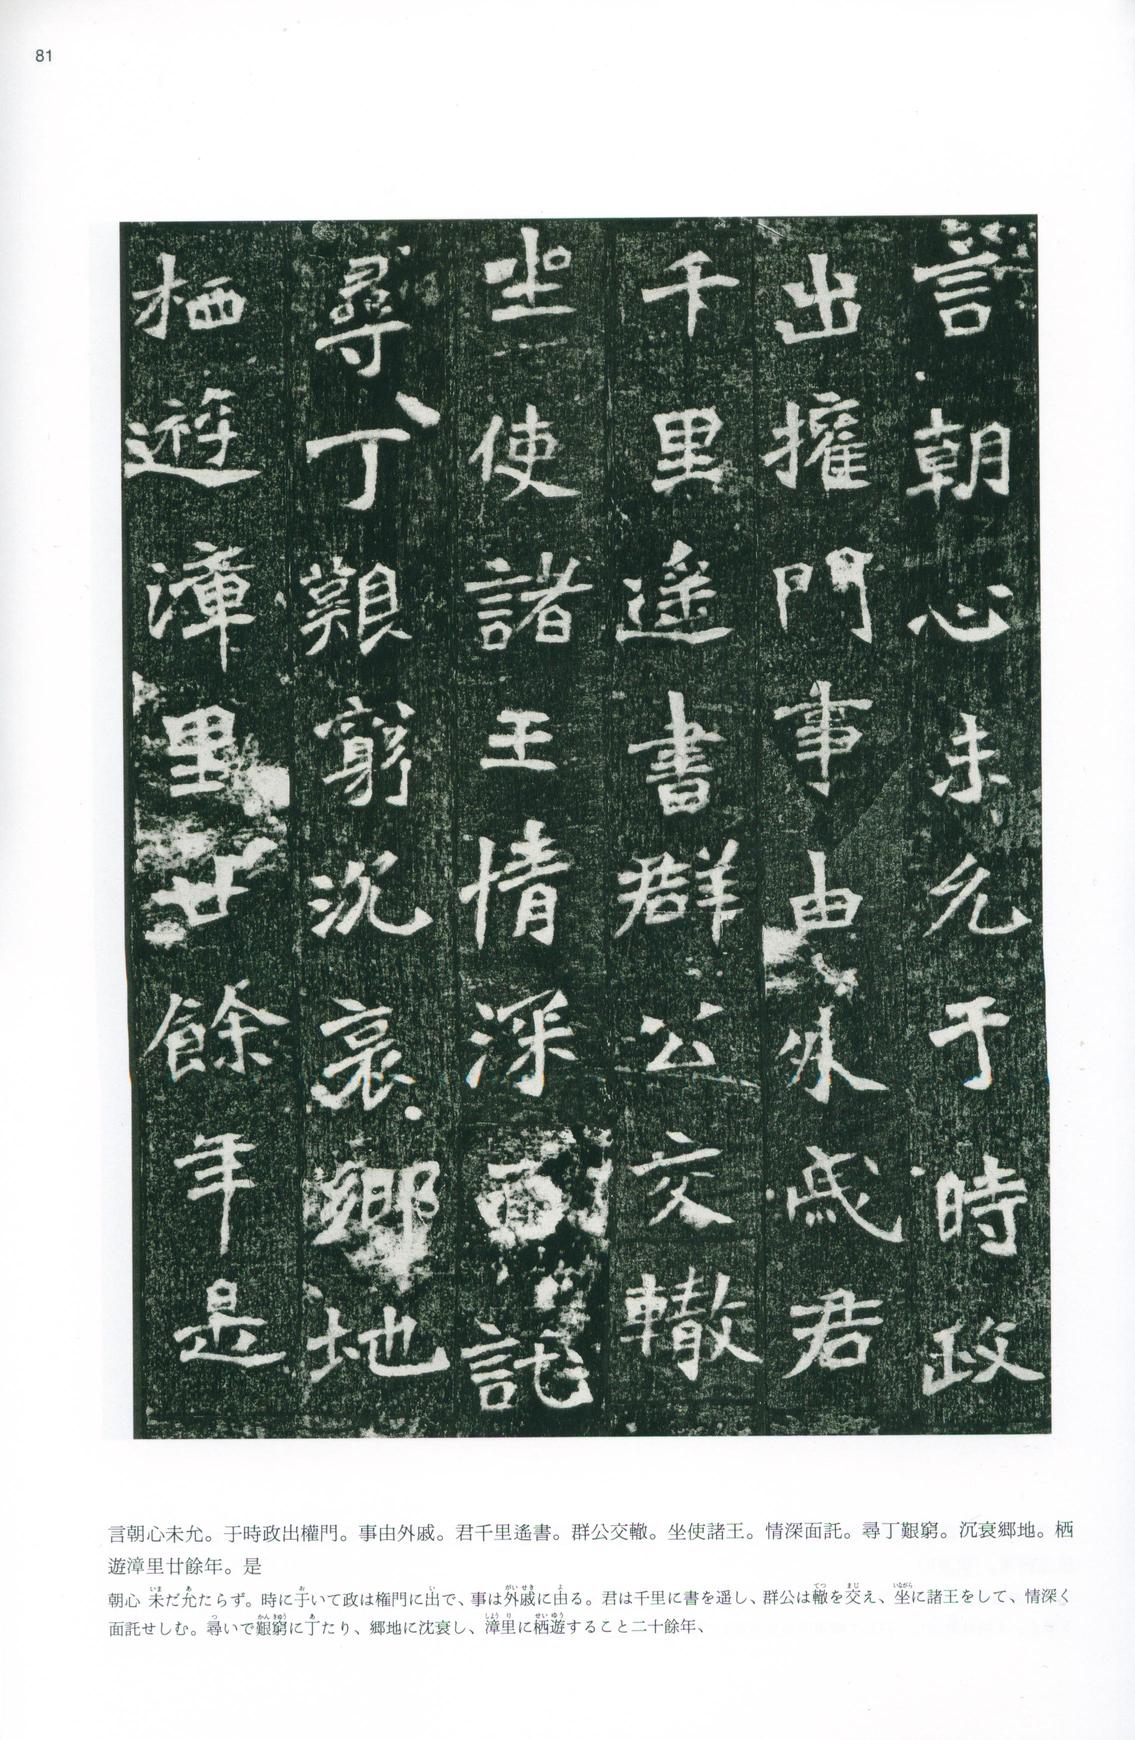 81
言朝心未允于時政
出權門事由外戚君
千里遥書群公交轍
坐使諸王情深面託
尋丁艱窮沉哀鄉地
栖遊漳里廿餘年是
言朝心未允。于時政出權門。事由外戚。君千里遙書。群公交轍。坐使諸王。情深面託。尋丁艱窮。沉衰郷地。栖
遊漳里廿餘年。是
朝心未だ允たらず。時に于いて政は権門に出で、事は外戚に由る。君は千里に書を遥し、群公は轍を交え、坐に諸王をして、情深く
面託せしむ。尋いで艱窮に丁たり、郷地に沈衰し、漳里に栖遊すること二十餘年、